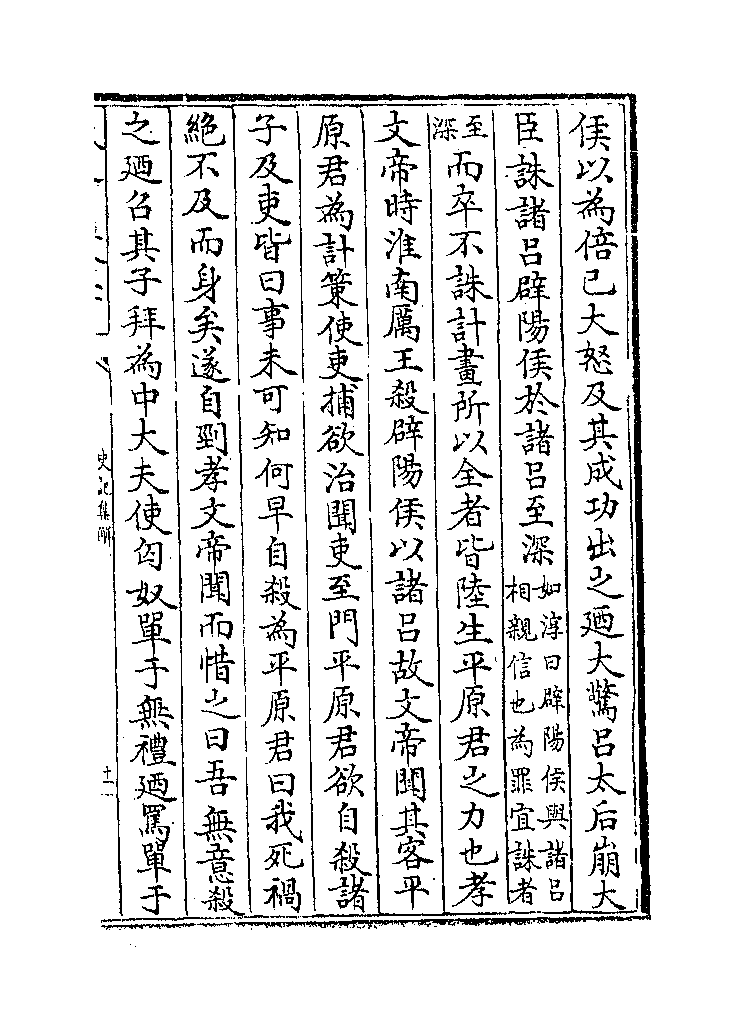 侯以為倍已大怒及其成功出之廼大驚呂太后崩大
臣誅諸呂辟陽侯於諸呂至深如淳曰辟陽侯與諸呂相親信也為罪宜誅者
至深而卒不誅計畫所以全者皆陸生平原君之力也孝
文帝時淮南厲王殺辟陽侯以諸呂故文帝聞其客平
原君為計策使吏捕欲治聞吏至門平原君欲自殺諸
子及吏皆曰事未可知何早自殺為平原君曰我死禍
絶不及而身矣遂自剄孝文帝聞而惜之曰吾無意殺
之廼召其子拜為中大夫使匈奴單于無禮廼罵單于
史記集解
十一